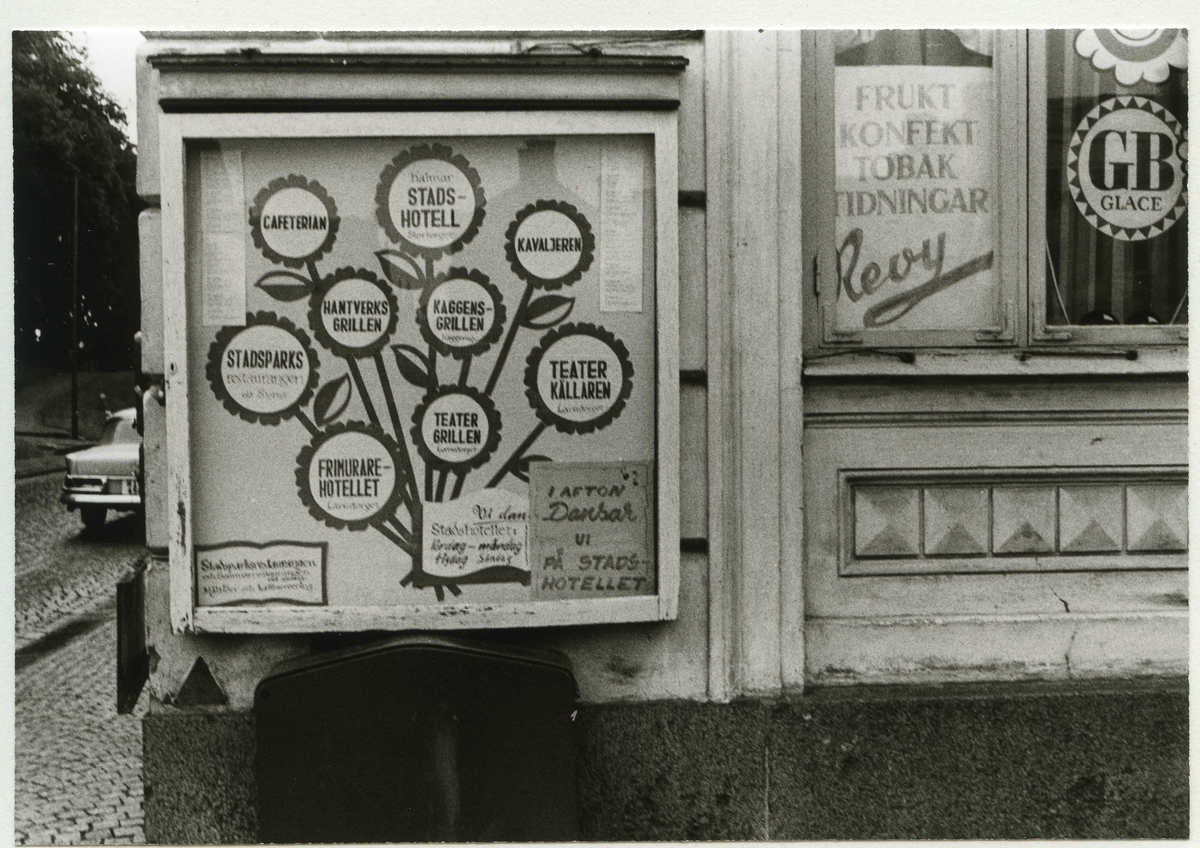 CAFETERIAN
Kalmar
STADS-
HOTELL
Stortorget
KAVALJEREN
HANTVERKS
GRILLEN
KAGGENS-
GRILLEN
STADSPARKS
restaurangen
TEATER
KÄLLAREN
Larmtorget
TEATER
GRILLEN
Larmtorget
FRIMURARE-
HOTELLET
Larmtorget
Vi dan
Stadshotellet:
lördag - måndag
Stadsparksrestaurangen
I AFTON
Dansar
VI
PÅ STADS-
HOTELLET
FRUKT
KONFEKT
TOBAK
TIDNINGAR
Revy
GB
GLACE